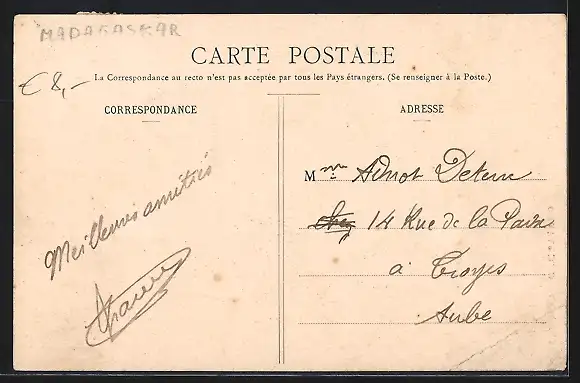 MADAGASKAR
CARTE POSTALE
La Correspondance au recto n'est pas acceptée par tous les Pays étrangers. (Se renseigner à la Poste.)
€ 8,-
CORRESPONDANCE
ADRESSE
Meilleures amitiés
Mme
14 Rue de la Paix
à Troyes
Aube